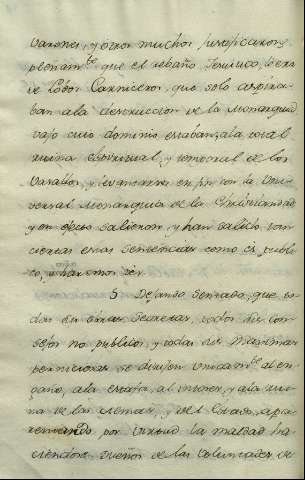 varones, y otros muchos justificaron
plenam.te que el rebaño Jesuitico, lo era
de Lobos Carniceros, que solo aspira-
ban a la destruccion de la Monarquia
vajo cuio dominio estaban, a la total
ruina espiritual, y temporal de los
Vasallos, y levantarse en fin con la Uni-
versal Monarquia de la Christiandad
y en efecto salieron, y han salido tan
ciertas estas sentencias como es publi-
co, y haremos ver.
5 Dejando sentado, que to-
das sus sectas secretas, todos sus con-
sejos no publicos, y todas sus maximas
perniciosas se dirijen unicam.te al en-
gaño, a la estafa, al interes, y a la rui-
na de las Almas, y del Estado, apa-
rentando por virtud la maldad ha-
ciendose Dueños de las voluntades de